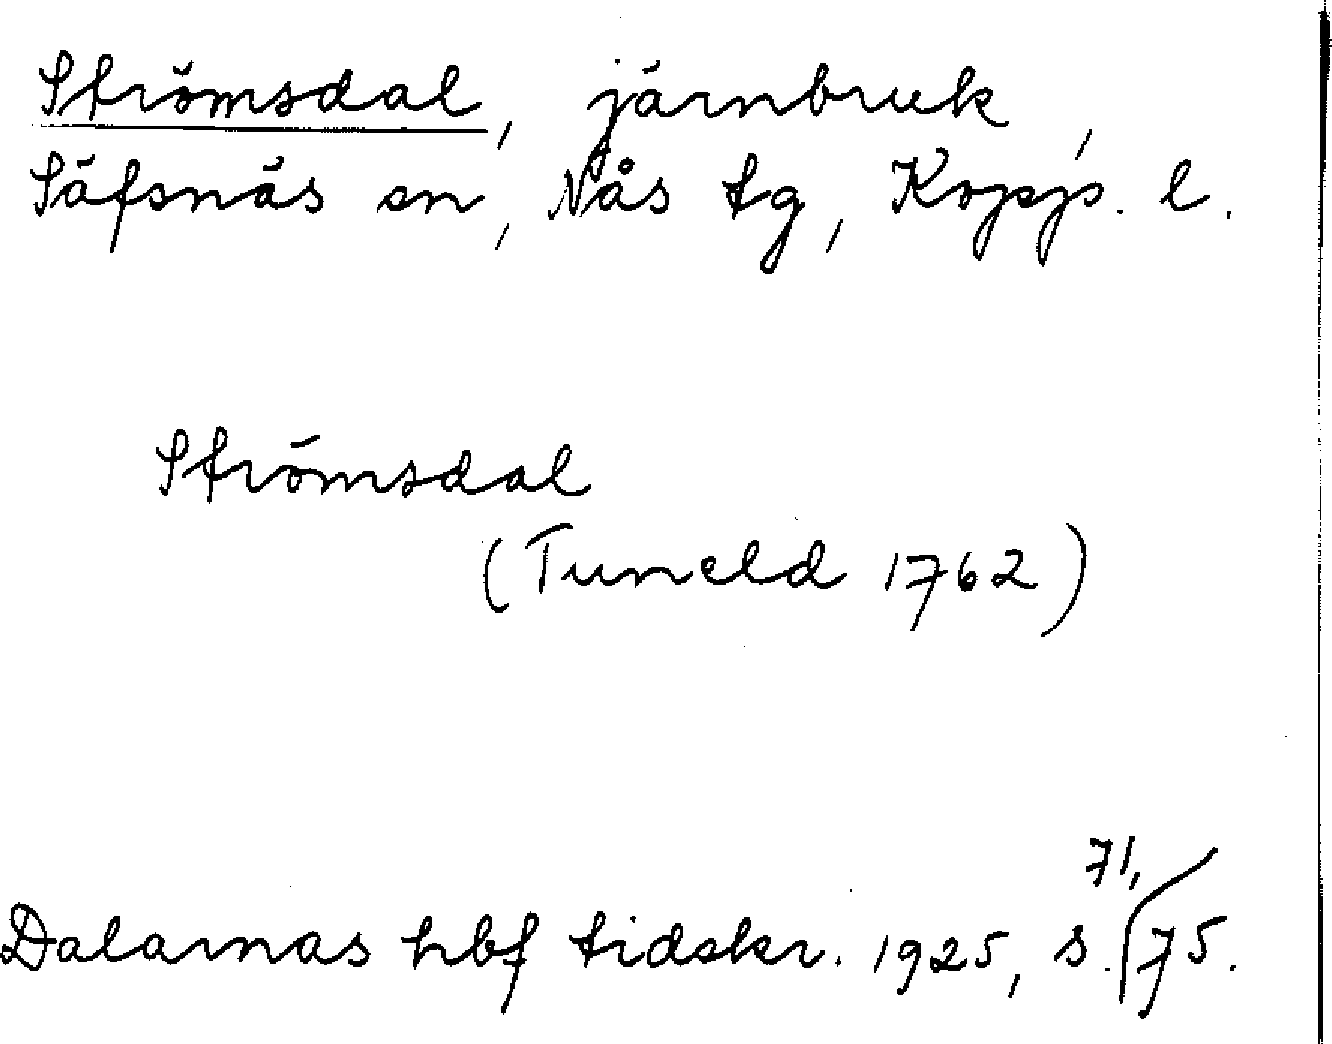 Strömsdal, järnbruk,
Säfsnäs sn, Nås tg, Kopp. l.
Strömsdal
(Tuneld 1762)
Dalarnas hbf tidskr. 1925, s. 71, 75.